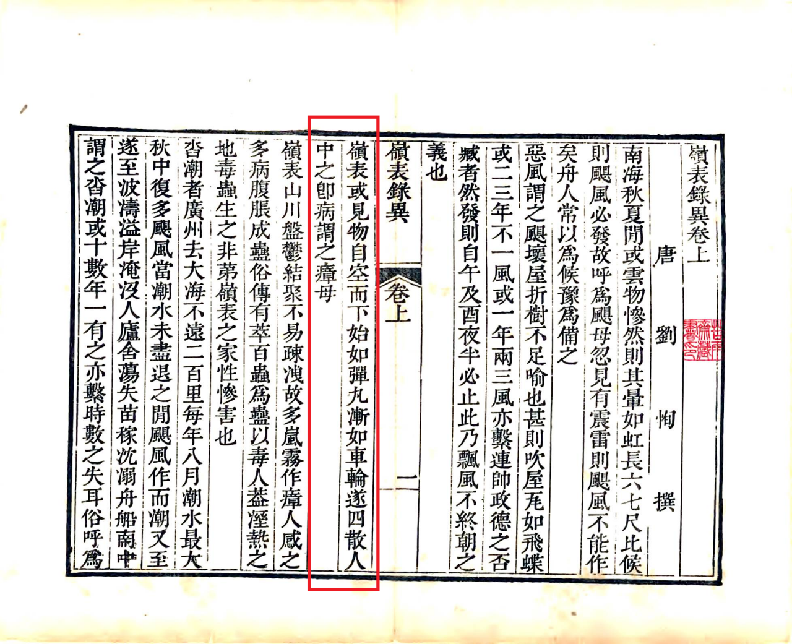 嶺表錄異卷上
唐 劉 恂 撰
南海秋夏閒或雲物慘然則其暈如虹長六七尺比候
則颶風必發故呼爲颶母忽見有震雷則颶風不能作
矣舟人常以爲候豫爲備之
惡風謂之颶壞屋折樹不足喻也甚則吹屋瓦如飛蝶
或二三年不一風或一年兩三風亦繫連帥政德之否
臧者然發則自午及酉夜半必止此乃飄風不終朝之
義也
嶺表錄異 卷上 二
嶺表或見物自空而下始如彈丸漸如車輪遂四散人
中之卽病謂之瘴母
嶺表山川盤鬱結聚不易疎洩故多嵐霧作瘴人感之
多病腹脹成蠱俗傳有萃百蟲爲蠱以毒人蓋溼熱之
地毒蟲生之非第嶺表之家性慘害也
沓潮者廣州去大海不遠二百里每年八月潮水最大
秋中復多颶風當潮水未盡退之閒颶風作而潮又至
遂至波濤溢岸淹沒人廬舍蕩失苗稼沈溺舟船南中
謂之沓潮或十數年一有之亦繫時數之失耳俗呼爲